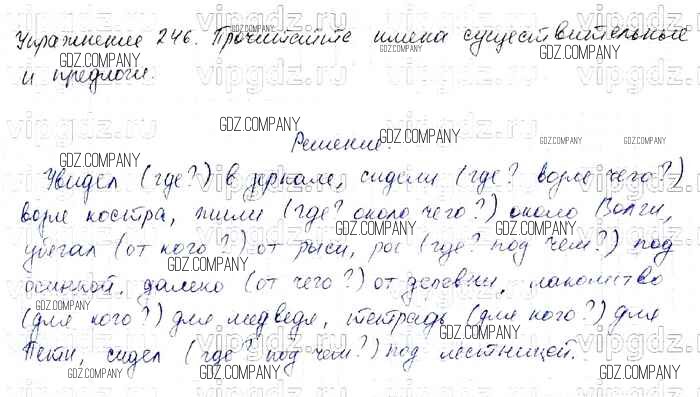 Упражнение 246. Прочитайте имена существительные
и предлоги.
Решение.
Увидел (где?) в зеркале, сидели (где? возле чего?)
возле костра, жили (где? около чего?) около Волги,
убегал (от кого?) от рыси, рос (где? под чем?) под
осинкой, далеко (от чего?) от деревни, лакомство
(для кого?) для медведя, тетрадь (для кого?) для
Пети, сидел (где? под чем?) под лестницей.